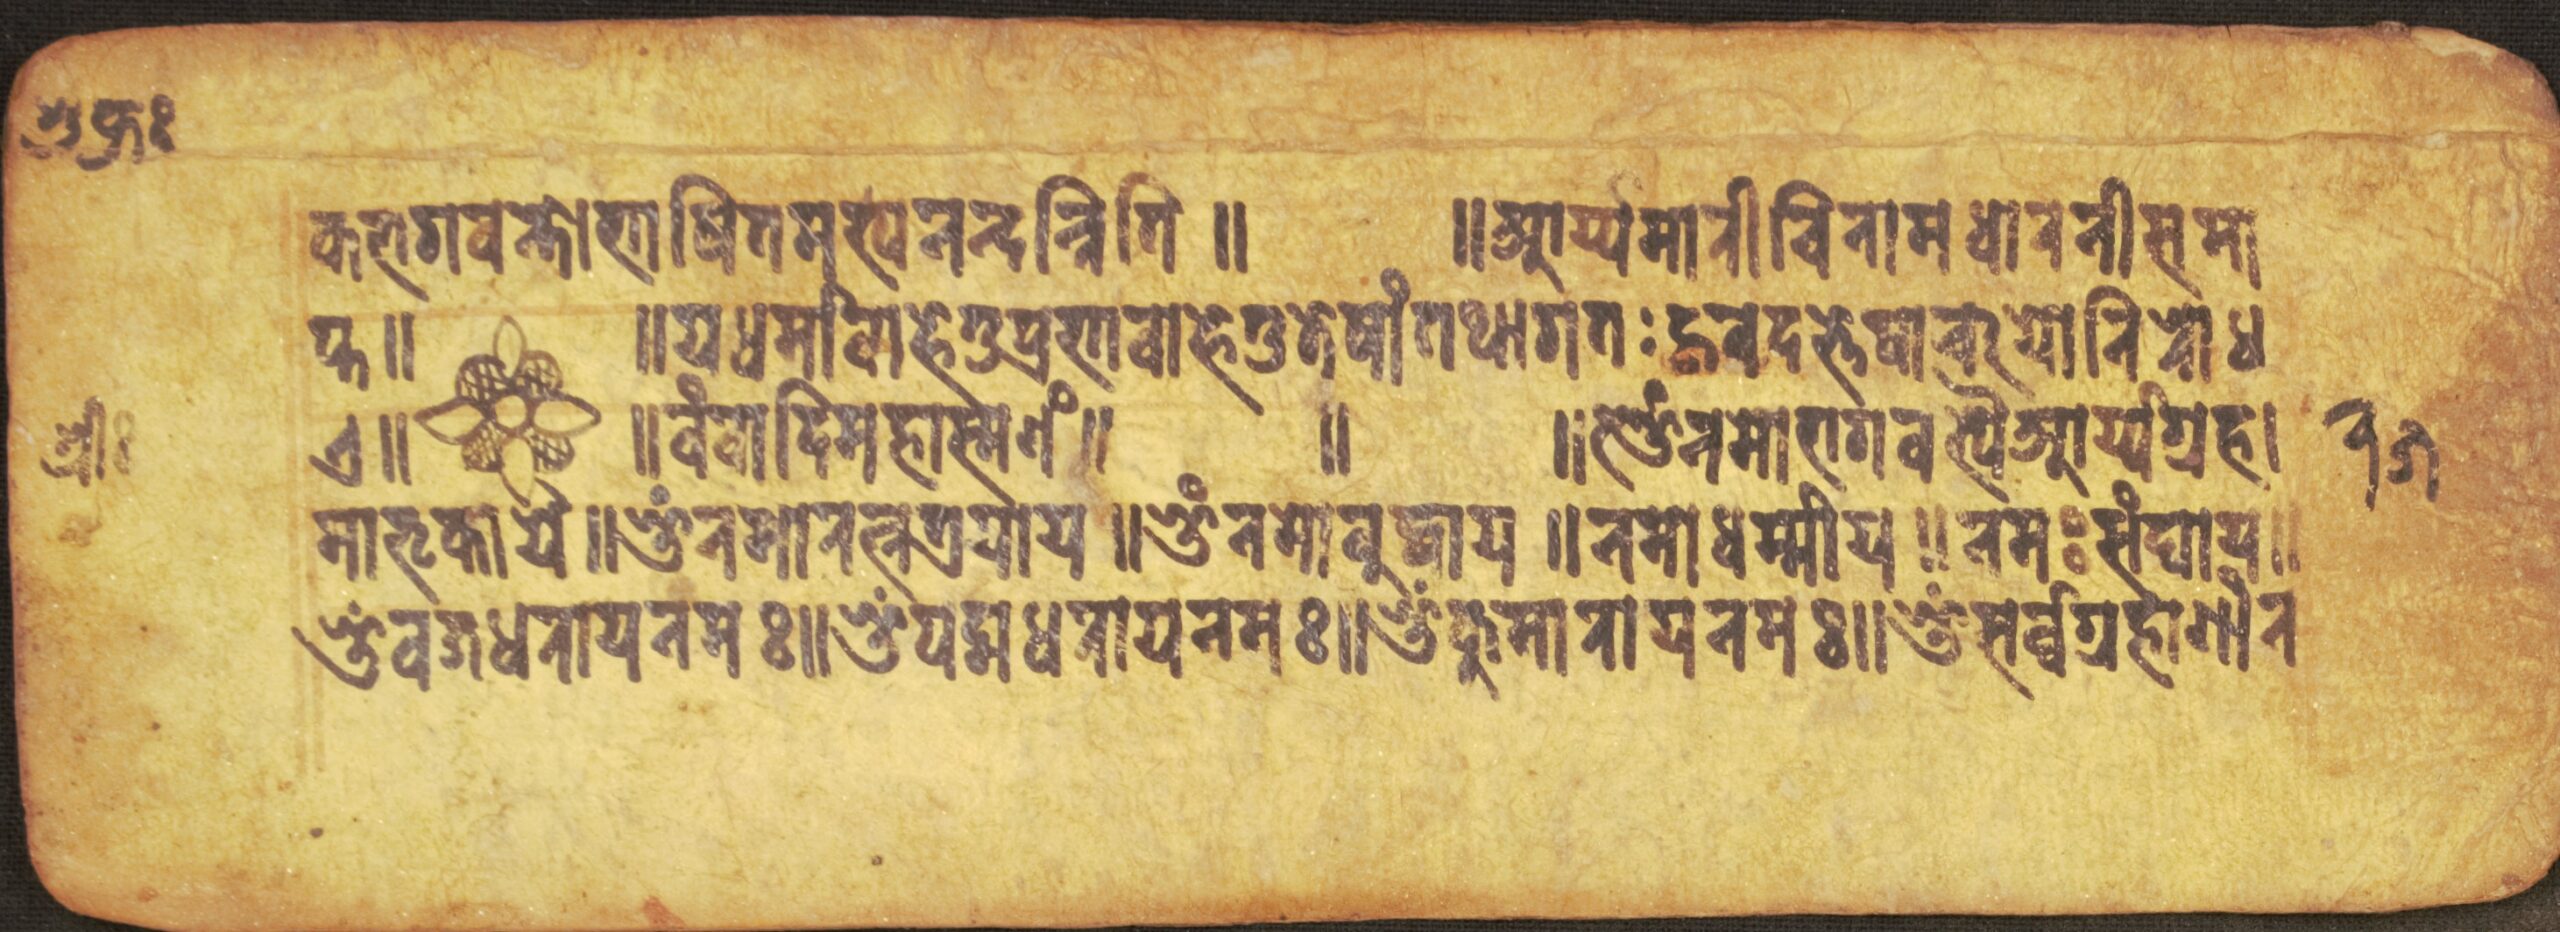 गुरुः
कभगवन्तो भाषितमभ्यनन्दन्निति ॥ ॥ आर्य्यमारीचिनामधारनीसमा
प्त ॥ ॥ यधर्मावाहेतुप्रभावाहेतुतेषांतथागत ः ह्रवदत्तेषाचयोनिरोध
ए ॥ ॥ वंवादिमहाश्मणं ॥ ॥ ॥ ॐनमोभगवत्यैआर्य्यग्रहा
श्रीः
१७
मातृकायै ॥ ॐनमोरत्नत्रयाय ॥ ॐनमोबुद्धाय ॥ नमोधर्म्माय ॥ नमः संघाय ॥
ॐवज्रधरायनमः ॥ ॐपद्मधरायनमः ॥ ॐकुमारायनमः ॥ ॐसर्व्वग्रहाणांन